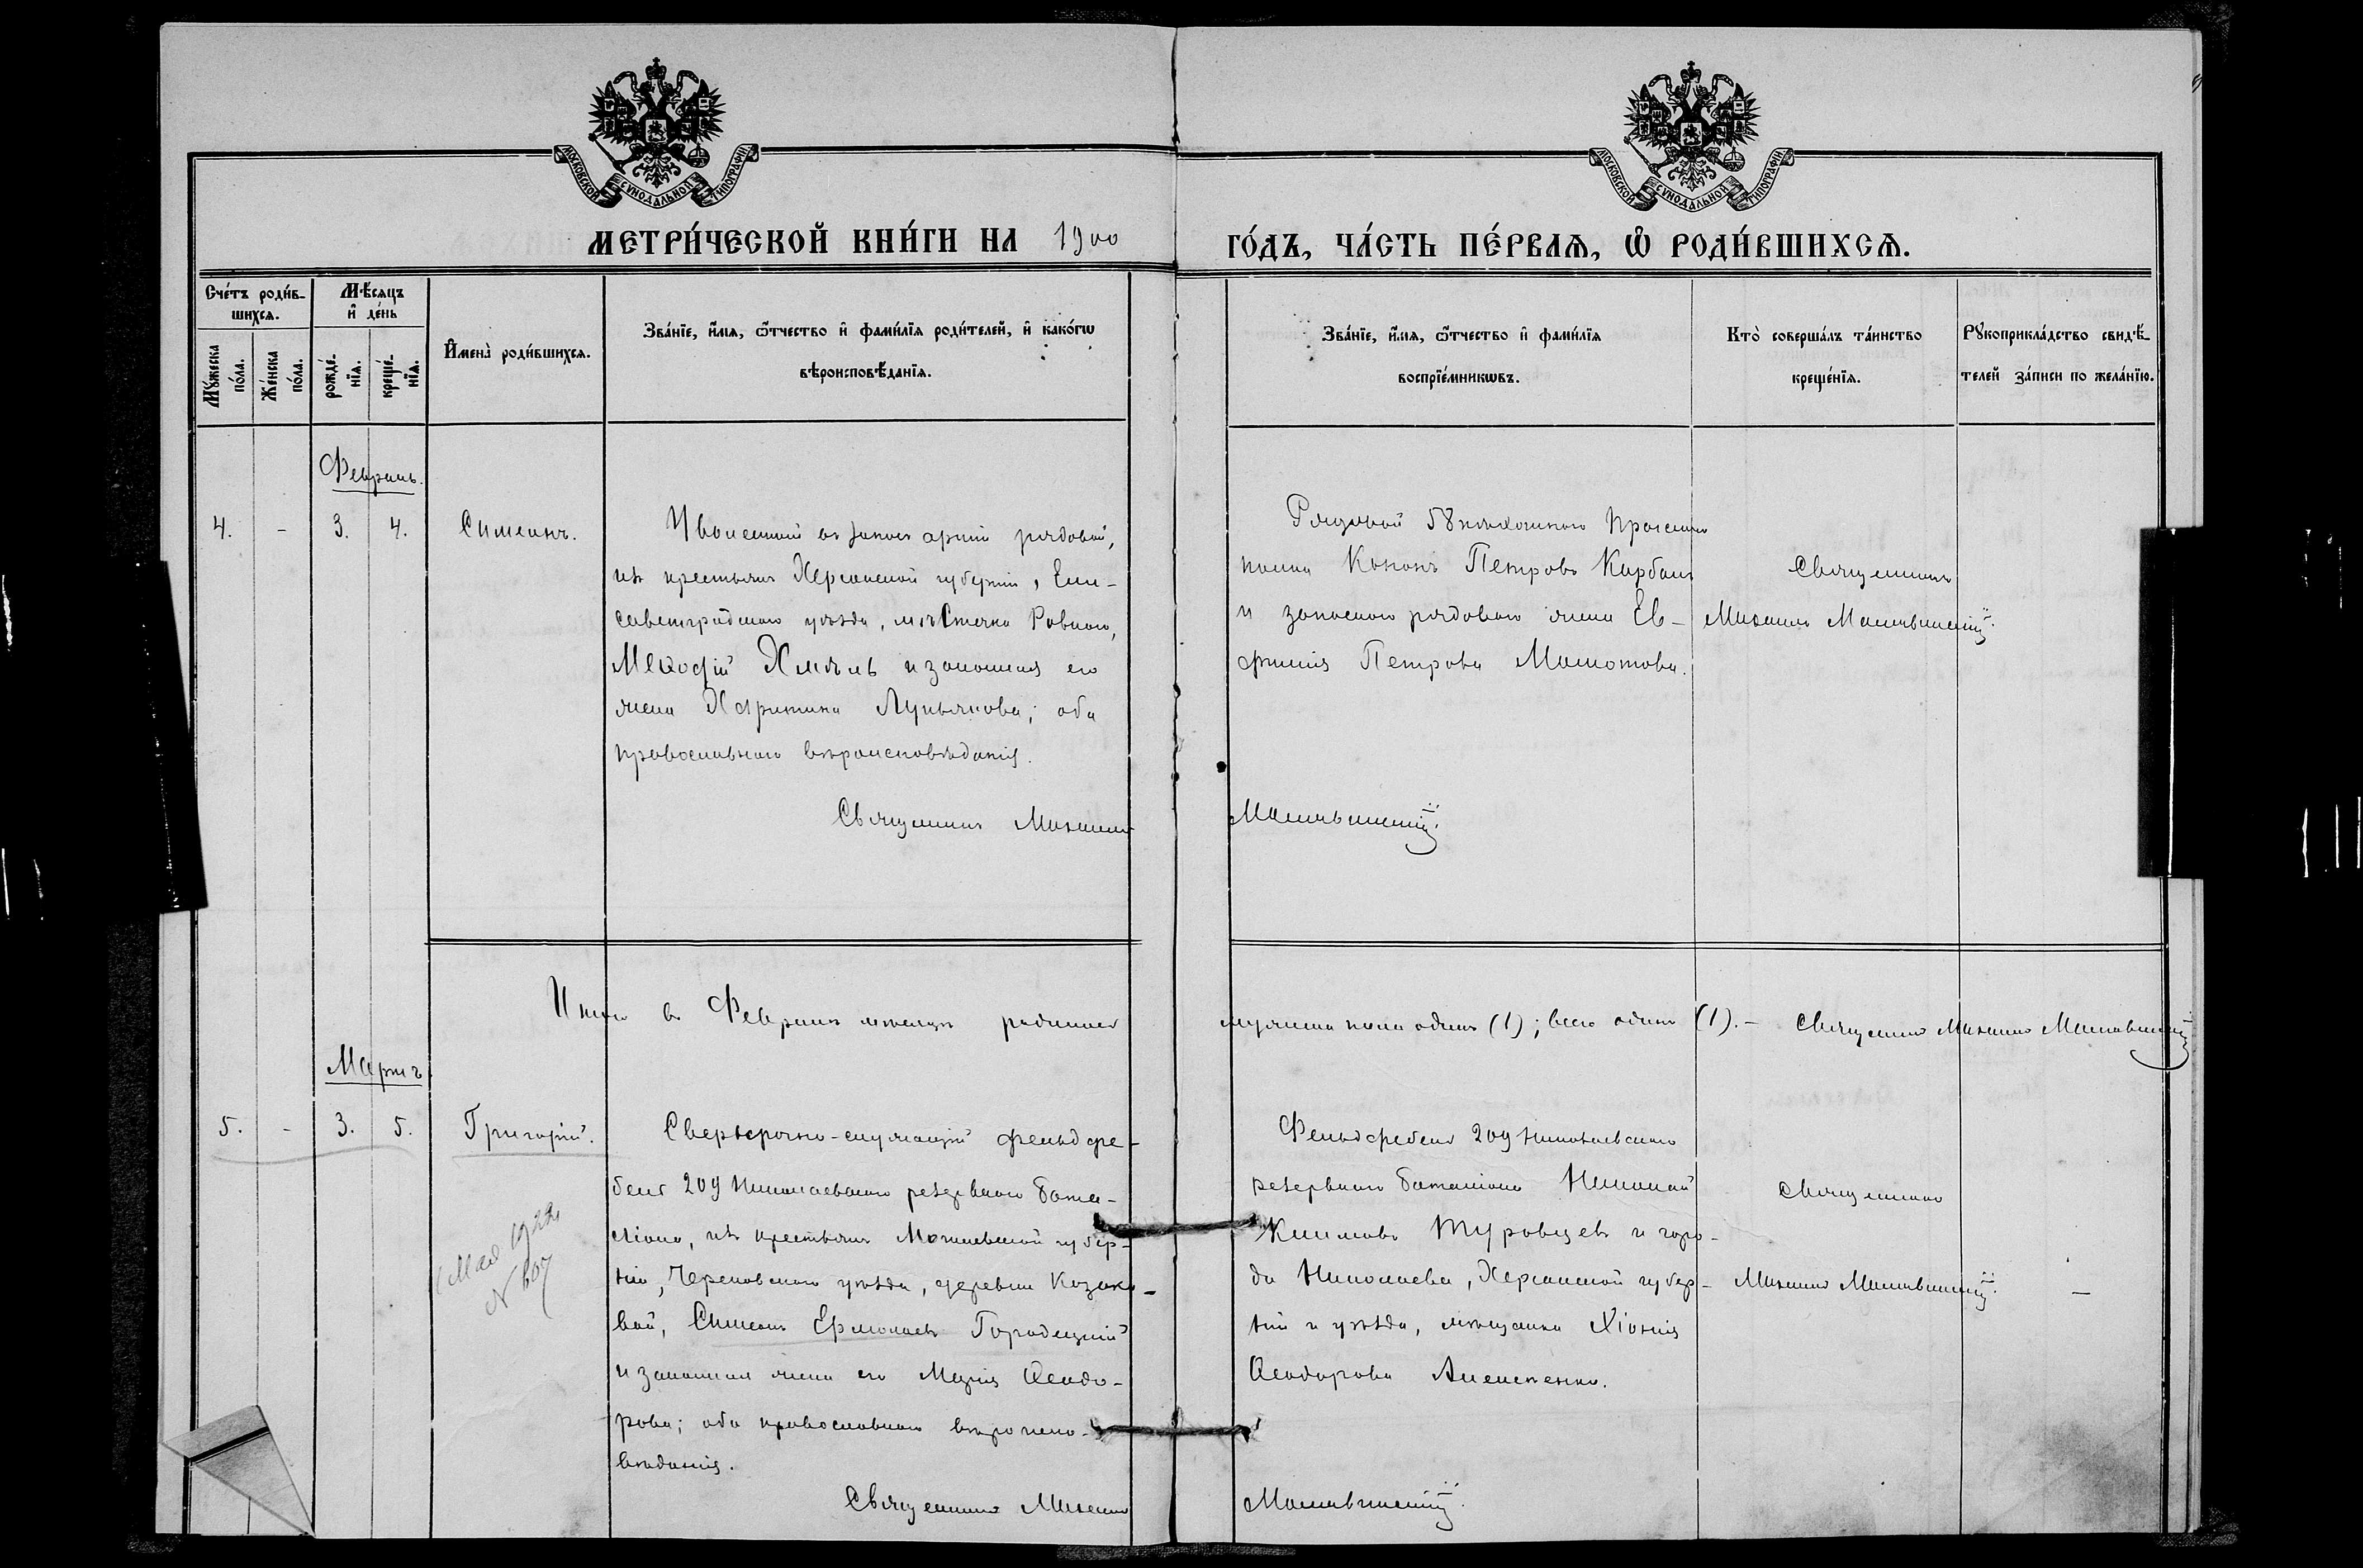 МОСКОВСКОЙ СѴНОДАЛЬНОЙ ТИПОГРАФІИ
МОСКОВСКОЙ СѴНОДАЛЬНОЙ ТИПОГРАФІИ
МЕТРИ́ЧЕСКОЙ КНИ́ГИ НА 1900
ГО́ДЪ, ЧА́СТЬ ПЕ́РВАѦ, Ѡ҆ РОДИ́ВШИХСѦ.
Сче́тъ роди́в-
шихсѧ.
Мѣ́сѧцъ
и҆ де́нь
Мꙋ́жеска
по́ла.
Же́нска
по́ла.
рожде́-
нїѧ.
креще́-
нїѧ.
И҆мена̀ роди́вшихсѧ.
Зва́нїе, и҆́мѧ, ѻ҆́тчество и҆ фами́лїѧ роди́телей, и҆ како́гѡ
вѣроисповѣ́данїѧ.
Зва́нїе, и҆́мѧ, ѻ҆́тчество и҆ фами́лїѧ
воспрїе́мникѡвъ.
Кто̀ соверша́лъ та́инство
креще́нїѧ.
Рꙋкоприкла́дство свидѣ́-
телей за́писи по жела́нїю.
Февраль.
4. - 3. 4. Симеонъ.
Уволенный въ запасъ арміи рядовой,
изъ крестьянъ Херсонской губерніи, Ели-
саветградскаго уѣзда, мѣстечка Ровнаго,
Меѳодій Хмѣль и законная его
жена Харитина Лукьянова; оба
православнаго вѣроисповѣданія.
Священникъ Михаилъ
Рядовой 58 пѣхотнаго Прагскаго
полка Кононъ Петровъ Карбанъ
и запаснаго рядового жена Ев-
фимія Петрова
Священникъ
Михаилъ
Итого въ Февралѣ мѣсяцѣ родилось
мужеска пола одинъ (1); всего одинъ (1). - Священникъ Михаилъ
Мартъ.
5. - 3. 5. Григорій.
Мая 1922
N 607
Сверхсрочно-служащій фельдфе-
бель 209 Николаевскаго резервнаго бата-
ліона, изъ крестьянъ Могилевской губер-
ніи, Чериковскаго уѣзда, деревни Козако-
вой, Симеонъ Ермолаевъ Городецкій
и законная жена его Марія Ѳеодо-
рова; оба православнаго вѣроиспо-
вѣданія.
Священникъ Михаилъ
Фельдфебель 209 Николаевскаго
резервнаго баталіона Николай
Климовъ Туровцевъ и горо-
да Николаева, Херсонской губер-
ніи и уѣзда, мѣщанка Хіонія
Ѳеодорова Алексеенко.
Священникъ
Михаилъ
-